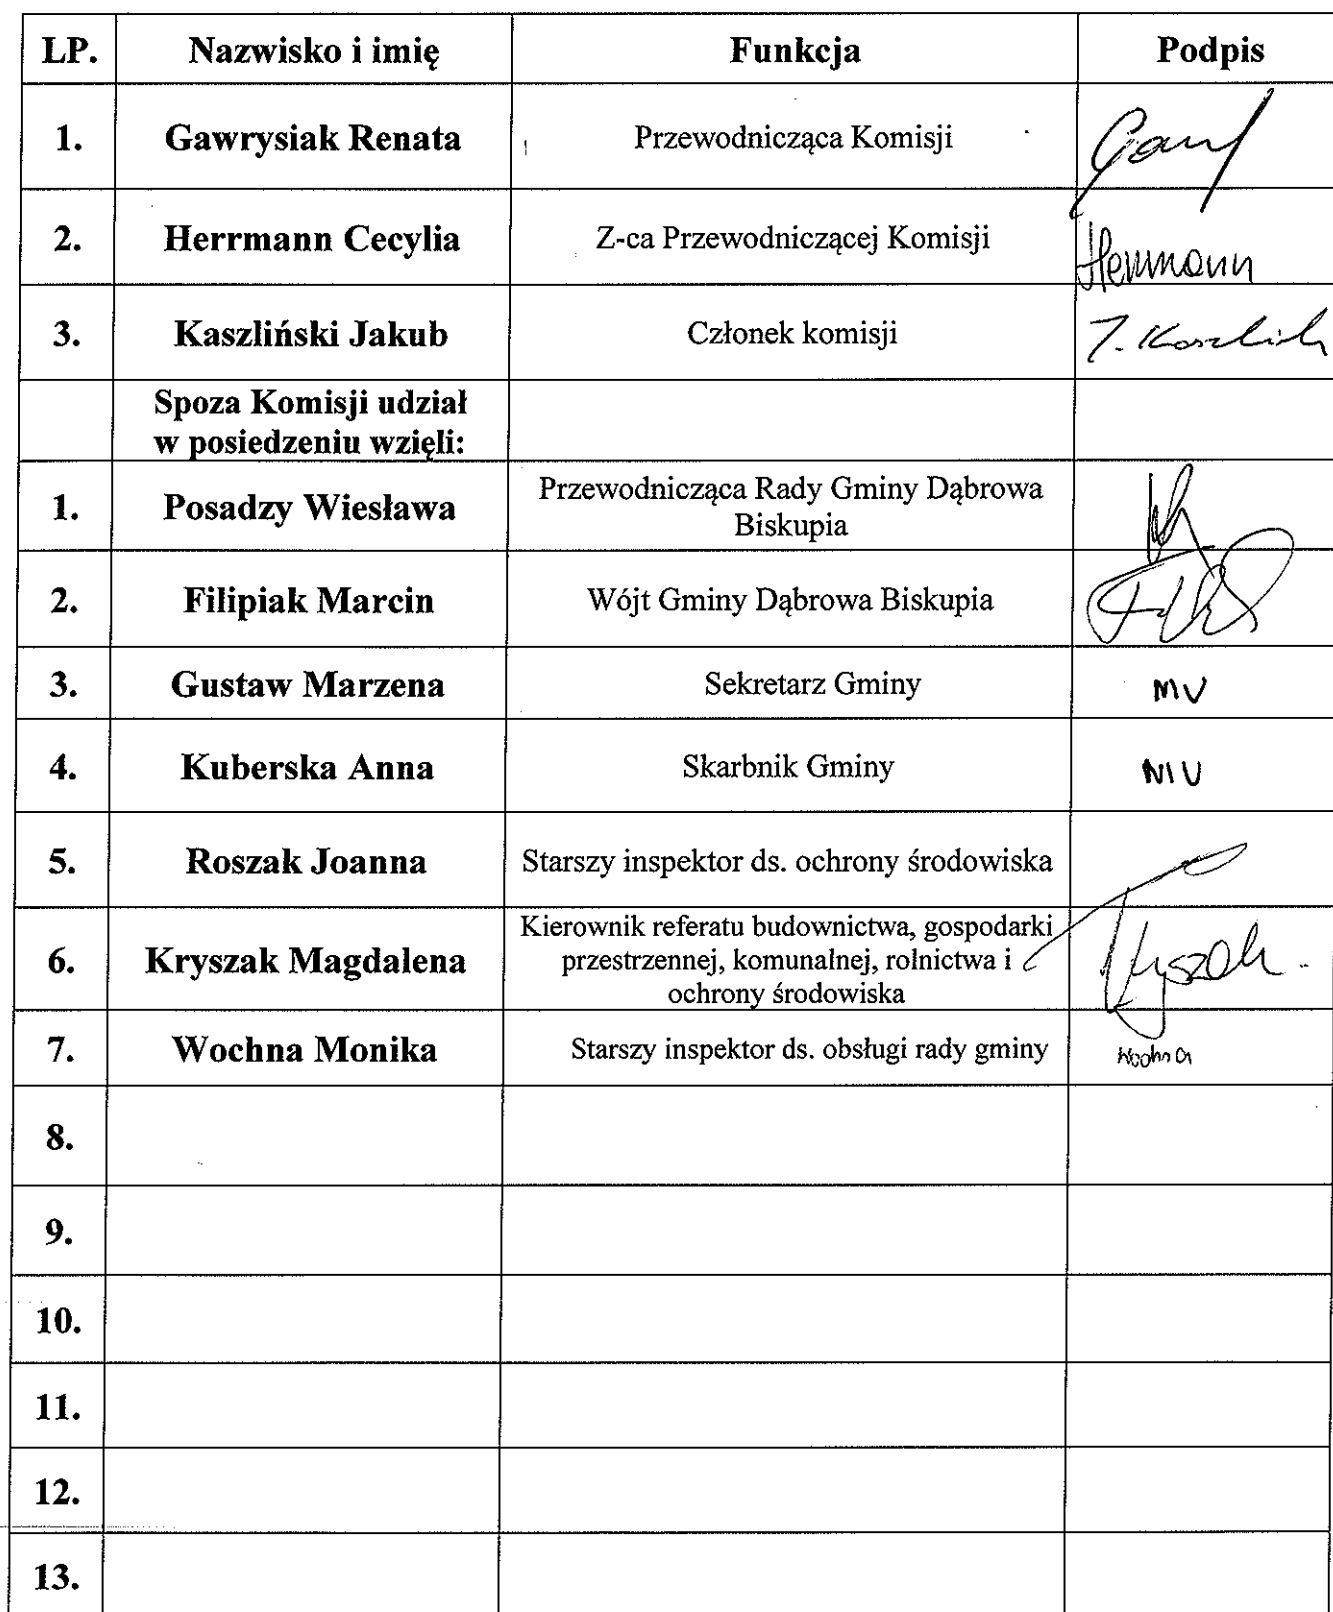 LP. Nazwisko i imię Funkcja Podpis
1. Gawrysiak Renata Przewodnicząca Komisji
2. Herrmann Cecylia Z-ca Przewodniczącej Komisji Herrmann
3. Kaszliński Jakub Członek komisji
Spoza Komisji udział
w posiedzeniu wzięli:
1. Posadzy Wiesława Przewodnicząca Rady Gminy Dąbrowa
Biskupia
2. Filipiak Marcin Wójt Gminy Dąbrowa Biskupia
3. Gustaw Marzena Sekretarz Gminy
4. Kuberska Anna Skarbnik Gminy
5. Roszak Joanna Starszy inspektor ds. ochrony środowiska
6. Kryszak Magdalena Kierownik referatu budownictwa, gospodarki
przestrzennej, komunalnej, rolnictwa i
ochrony środowiska
7. Wochna Monika Starszy inspektor ds. obsługi rady gminy Wochna
8.
9.
10.
11.
12.
13.